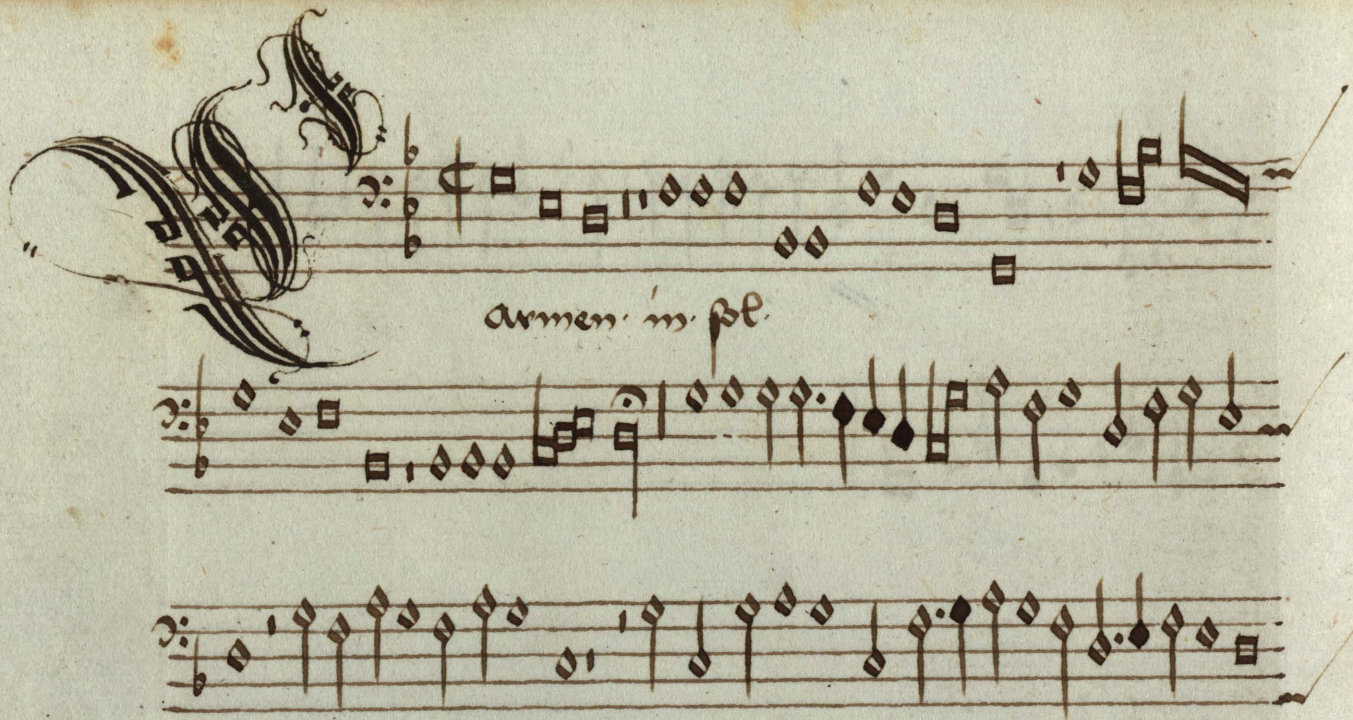 armen. in. sol.